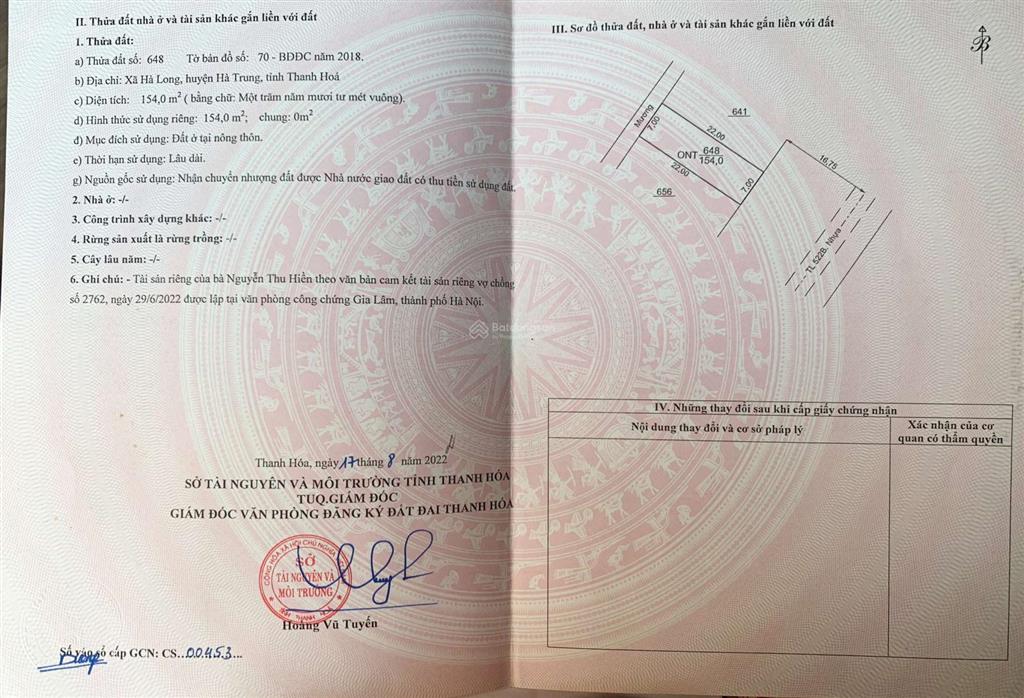 II. Thửa đất nhà ở và tài sản khác gắn liền với đất
1. Thửa đất:
a) Thửa đất số: 648 Tờ bản đồ số: 70 - BDĐC năm 2018.
b) Địa chỉ: Xã Hà Long, huyện Hà Trung, tỉnh Thanh Hoá
c) Diện tích: 154,0 m² ( bằng chữ: Một trăm năm mươi tư mét vuông).
d) Hình thức sử dụng riêng: 154,0 m²; chung: 0m²
đ) Mục đích sử dụng: Đất ở tại nông thôn.
e) Thời hạn sử dụng: Lâu dài.
g) Nguồn gốc sử dụng: Nhận chuyển nhượng đất được Nhà nước giao đất có thu tiền sử dụng đất.
2. Nhà ở: -/-
3. Công trình xây dựng khác: -/-
4. Rừng sản xuất là rừng trồng: -/-
5. Cây lâu năm: -/-
6. Ghi chú: - Tài sản riêng của bà Nguyễn Thu Hiền theo văn bản cam kết tài sản riêng vợ chồng
số 2762, ngày 29/6/2022 được lập tại văn phòng công chứng Gia Lâm, thành phố Hà Nội.
Thanh Hóa, ngày 17 tháng 8 năm 2022
SỞ TÀI NGUYÊN VÀ MÔI TRƯỜNG TỈNH THANH HÓA
TUQ.GIÁM ĐỐC
GIÁM ĐỐC VĂN PHÒNG ĐĂNG KÝ ĐẤT ĐAI THANH HÓA
CỘNG HÒA XÃ HỘI CHỦ NGHĨA
SỞ
TÀI NGUYÊN VÀ
MÔI TRƯỜNG
TỈNH THANH HÓA
Hoàng Vũ Tuyến
Số vào sổ cấp GCN: CS..00453...
III. Sơ đồ thửa đất, nhà ở và tài sản khác gắn liền với đất
B
Mương
7,00
22,00
641
ONT 648
154,0
22,00
7,00
656
16,75
TL 522B. Nhựa
Batdongsan
IV. Những thay đổi sau khi cấp giấy chứng nhận
Nội dung thay đổi và cơ sở pháp lý
Xác nhận của cơ
quan có thẩm quyền